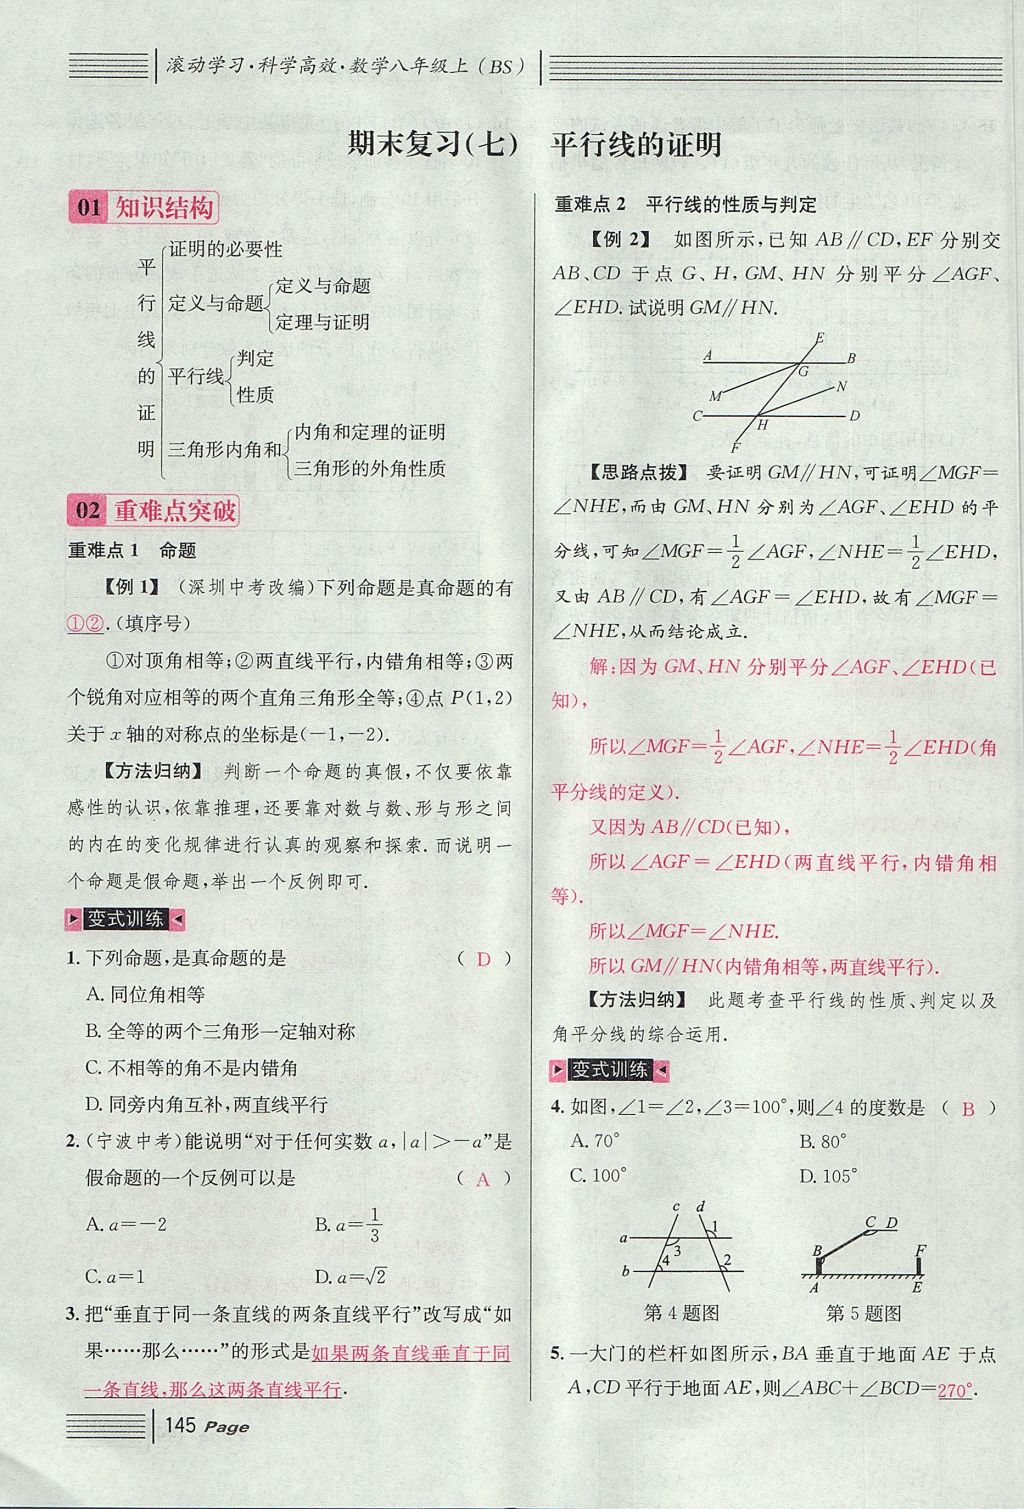 滚动学习·科学高效·数学八年级上(BS)
期末复习(七) 平行线的证明
01 知识结构
平行线的证明
证明的必要性
定义与命题
定义与命题
定理与证明
平行线
判定
性质
三角形内角和
内角和定理的证明
三角形的外角性质
02 重难点突破
重难点1 命题
【例1】 (深圳中考改编)下列命题是真命题的有
①②.(填序号)
①对顶角相等;②两直线平行,内错角相等;③两
个锐角对应相等的两个直角三角形全等;④点 P(1,2)
关于 x 轴的对称点的坐标是(-1,-2).
【方法归纳】 判断一个命题的真假,不仅要依靠
感性的认识,依靠推理,还要靠对数与数、形与形之间
的内在的变化规律进行认真的观察和探索.而说明一
个命题是假命题,举出一个反例即可.
变式训练
1. 下列命题,是真命题的是 ( D )
A. 同位角相等
B. 全等的两个三角形一定轴对称
C. 不相等的角不是内错角
D. 同旁内角互补,两直线平行
2. (宁波中考)能说明“对于任何实数 a,|a|>-a”是
假命题的一个反例可以是 ( A )
A. a=-2 B. a=1/3
C. a=1 D. a=√2
3. 把“垂直于同一条直线的两条直线平行”改写成“如
果……那么……”的形式是如果两条直线垂直于同
一条直线,那么这两条直线平行.
145 Page
重难点2 平行线的性质与判定
【例2】 如图所示,已知 AB∥CD,EF 分别交
AB、CD 于点 G、H,GM、HN 分别平分∠AGF、
∠EHD.试说明 GM∥HN.
E
A B
G
M N
C D
H
F
【思路点拨】 要证明 GM∥HN,可证明∠MGF=
∠NHE,而由 GM、HN 分别为∠AGF、∠EHD 的平
分线,可知∠MGF=1/2∠AGF,∠NHE=1/2∠EHD,
又由 AB∥CD,有∠AGF=∠EHD,故有∠MGF=
∠NHE,从而结论成立.
解:因为 GM、HN 分别平分∠AGF、∠EHD(已
知),
所以∠MGF=1/2∠AGF,∠NHE=1/2∠EHD(角
平分线的定义).
又因为 AB∥CD(已知),
所以∠AGF=∠EHD(两直线平行,内错角相
等).
所以∠MGF=∠NHE.
所以 GM∥HN(内错角相等,两直线平行).
【方法归纳】 此题考查平行线的性质、判定以及
角平分线的综合运用.
变式训练
4. 如图,∠1=∠2,∠3=100°,则∠4 的度数是 ( B )
A. 70° B. 80°
C. 100° D. 105°
c d
a 1
3
b 4 2
第4题图
C D
B F
A E
第5题图
5. 一大门的栏杆如图所示,BA 垂直于地面 AE 于点
A,CD 平行于地面 AE,则∠ABC+∠BCD=270°.